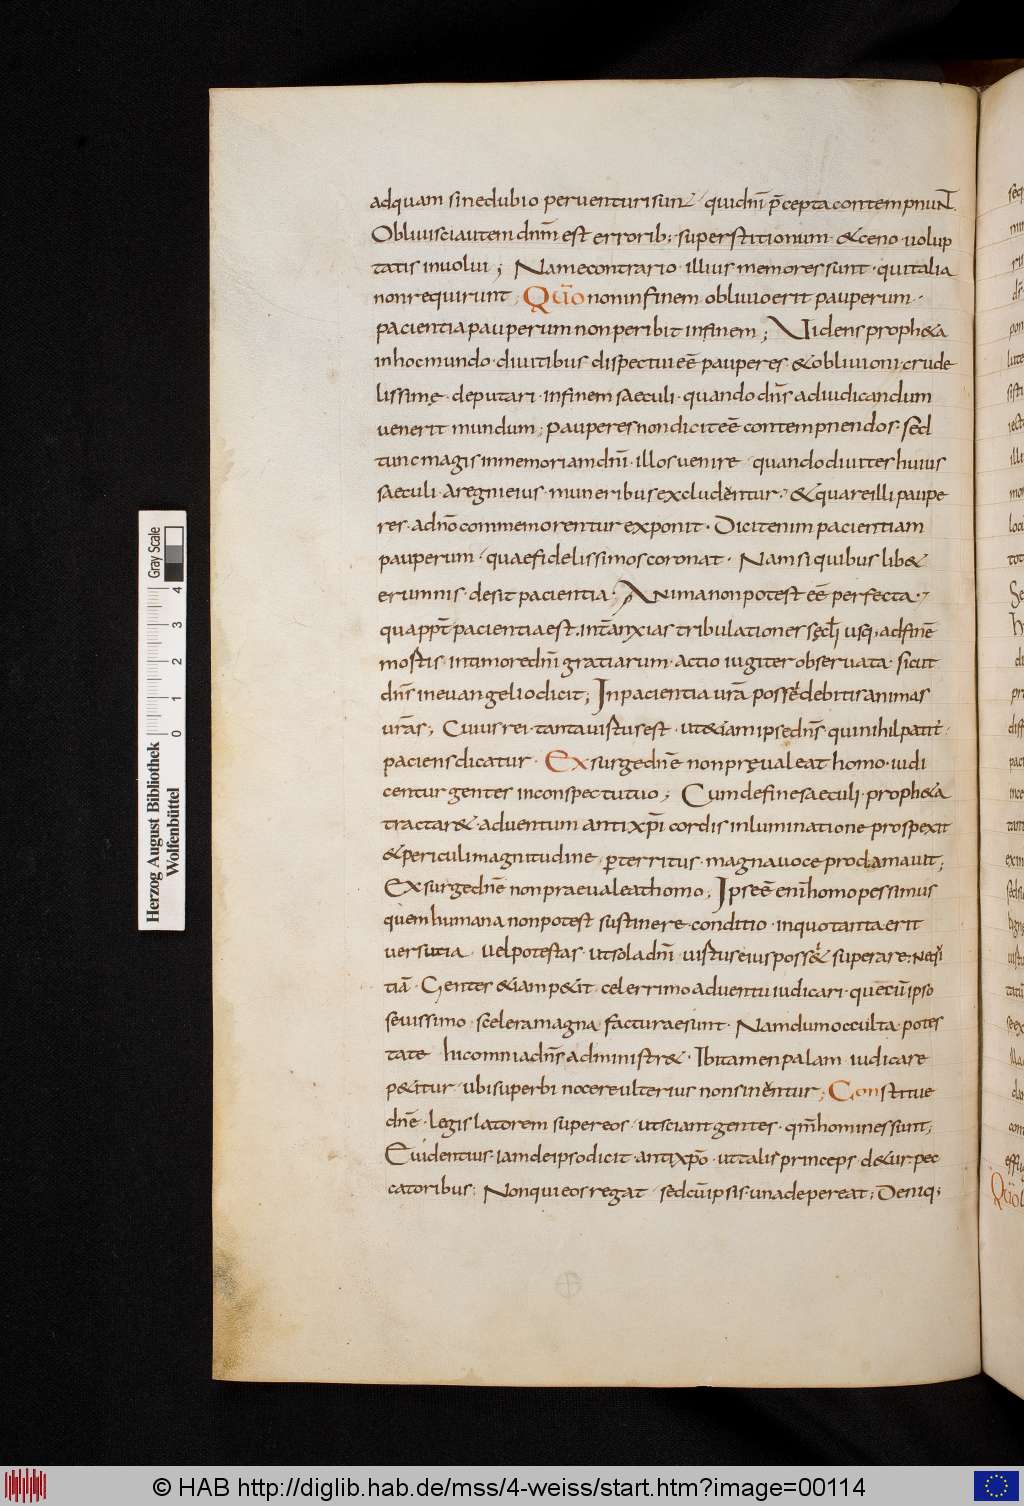 adquam sinedubio peruenturisunt quidnī p̄cepta contempnuNT.
Obliuisciautem dnm̄ est errorib; superstitionum · &ceno uolup
tatis inuolui; Namecontrario · illius memores sunt · quitalia
nonrequirunt; Qūo noninfinem obliuioerit pauperum ·
pacientia pauperum nonperibit infinem; Uidens proph&a
inhocmundo · diuitibus dispectui eē pauperes &obliuioni crude
lissimę · deputari · infinem saeculi · quando dn̄s adiudicandum
uenerit mundum; pauperes nondicit eē contempnendos · sed
tunc magis inmemoriam dnī · illos uenire quando diuites huius
saeculi · aregni eius · muneribus excludentur · &quare illi paupe
res · adnō commemorentur exponit · Dicit enim pacientiam
pauperum · quae fidelissimos coronat · Nam si quibus lib&
erumnis · desit pacientia · Anima non potest eē perfecta ·
quappt̄ pacientia est. int̄ anxias tribulationes sęcl̄i usq; adfinē
mostis · intimore dnī gratiarum · actio iugiter obseruata · sicut
dn̄s ineuangelio dicit; Inpacientia urā possedebitis animas
urās; Cuius rei · tanta uistus est · ut&iam ipse dn̄s qui nihil patit'
paciens dicatur · Exsurgednē non pręualeat homo · iudi
centur gentes inconspectu tuo; Cum define saeculi · proph&a
tractar& · aduentum antixp̄i cordis inluminatione prospexit
&periculi magnitudine p̱territus · magna uoce proclamauit;
Exsurgednē non praeualeat homo; Ipse ē enim̄ homo pessimus
quem humana non potest sustinere conditio · inquo tanta erit
uersutia uel potestas · ut sola dnī uistus eius poss& superare · neq̄si
tiā · Gentes &iam p&it · celerrimo aduentu iudicari · que cū ipso
seuissimo · scelera magna facturae sunt · Nam dum occulta potes
tate hic omnia dn̄s administr& · Ibi tamen palam iudicare
p&itur ubi superbi nocere ulterius non sinentur; Constitue
dnē · legislatorem super eos · ut sciant gentes · qm̄ homines sunt;
Euidentius · iam de ipso dicit · antixp̄o · ut talis princeps d&ur pec
catoribus; Non qui eos regat sed cū ipsis una depereat; Deniq;
Herzog August Bibliothek
Wolfenbüttel
0 1 2 3 4
Gray Scale
© HAB http://diglib.hab.de/mss/4-weiss/start.htm?image=00114